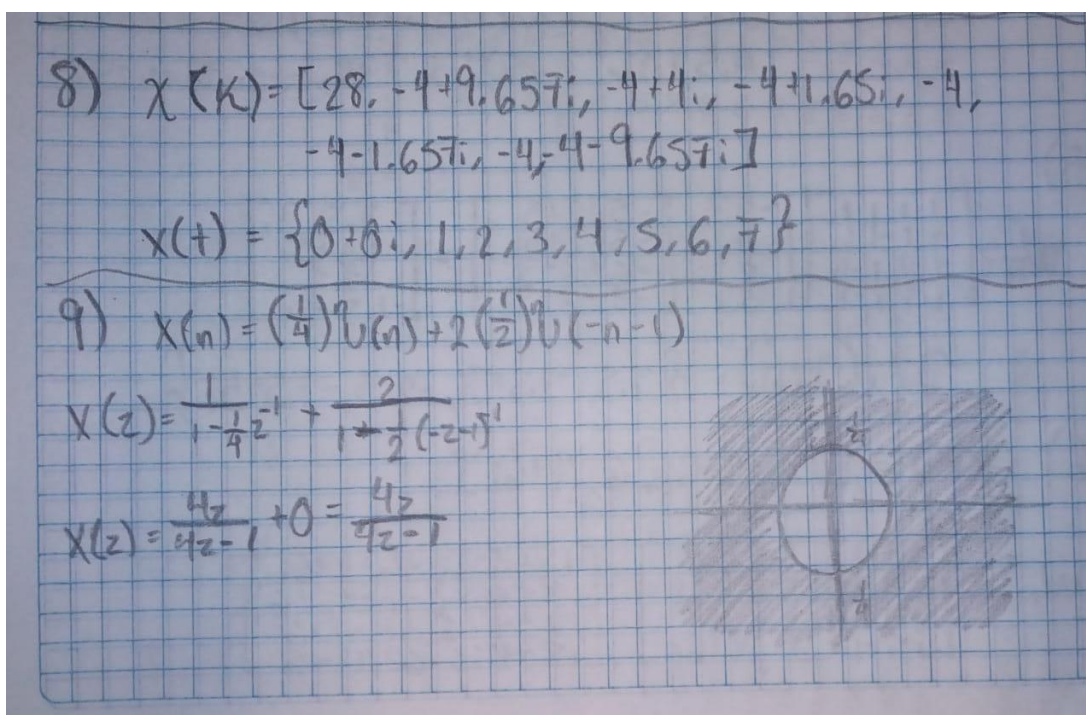 8) X(K) = [28, -4+9.657i, -4+4i, -4+1.65i, -4,
-4-1.657i, -4,-4-9.657i]
x(t) = {0+0i, 1, 2, 3, 4, 5, 6, 7}
9) x(n) = (1/4)^n u(n) + 2(1/2)^n u(-n-1)
X(z) = 1/(1-1/4 z^-1) + 2/(1-1/2(-z-1)^-1)
1/4
X(z) = 4z/(4z-1) + 0 = 4z/(4z-1)
1/4